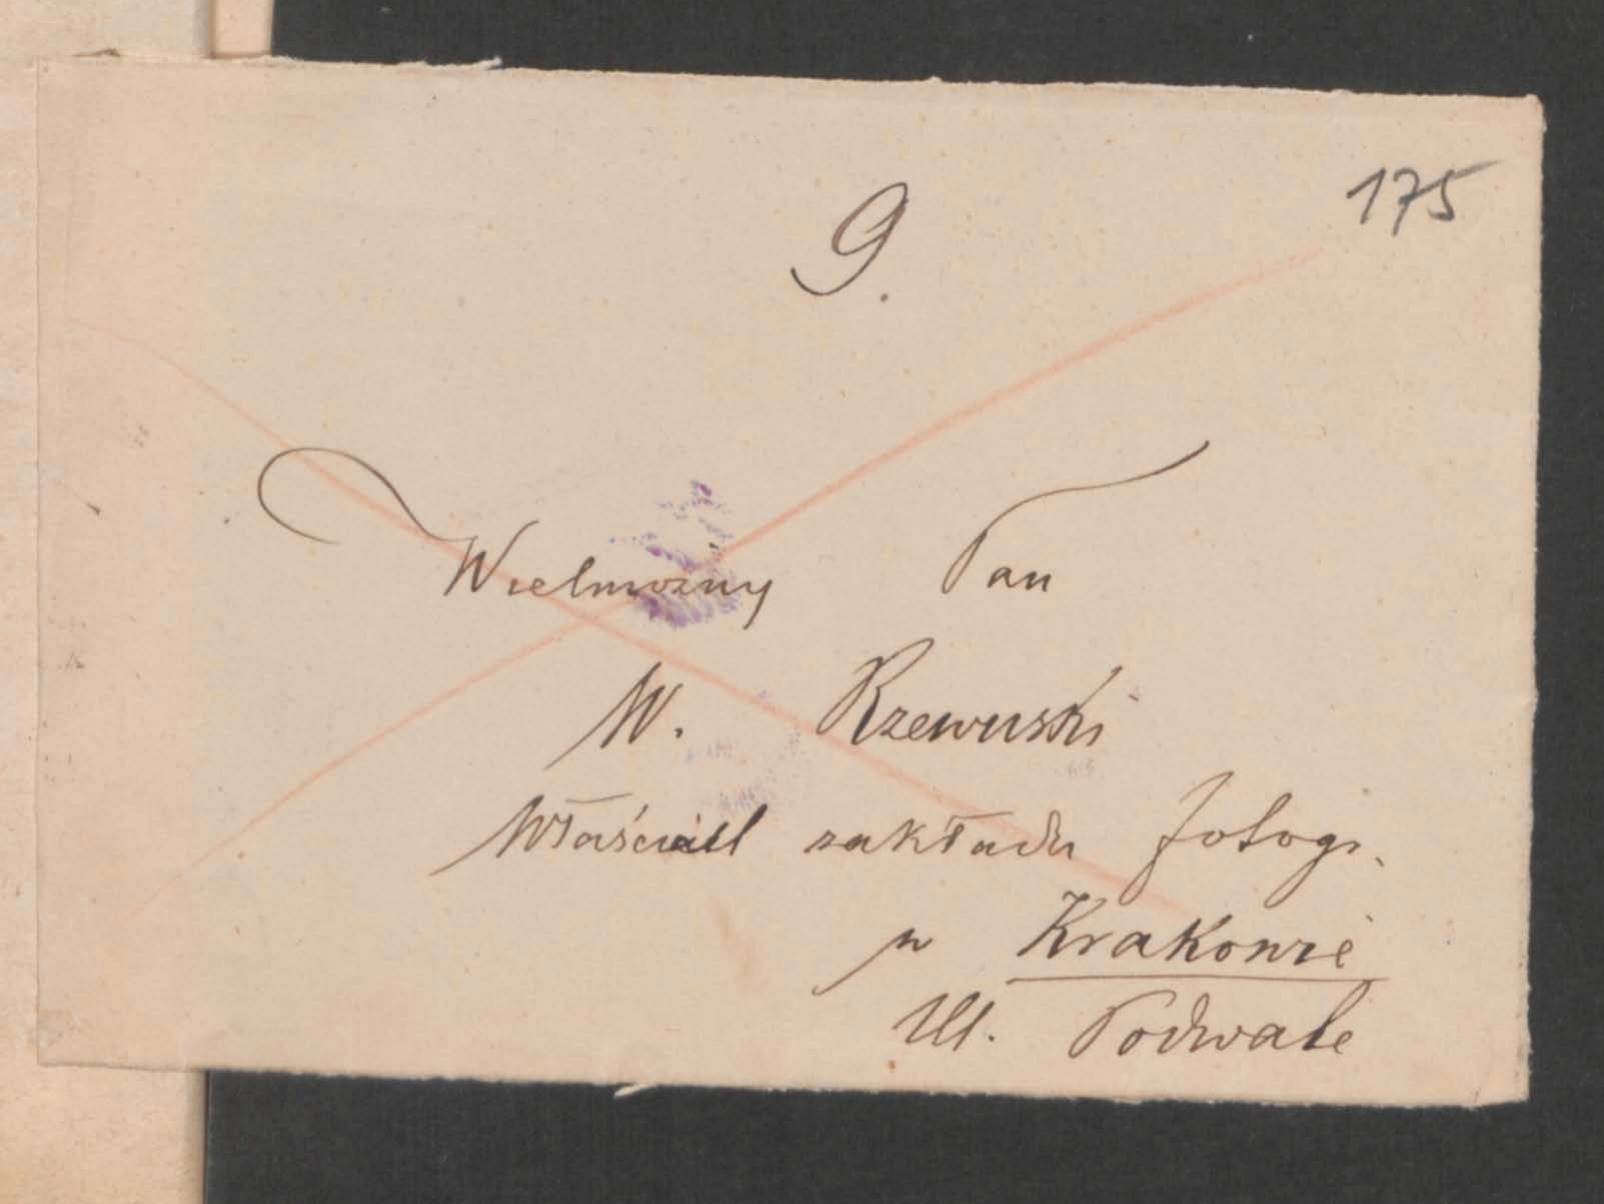 175
9.
Wielmożny Pan
W. Rzewuski
Właściciel zakładu fotogr.
w Krakowie
Ul. Podwale